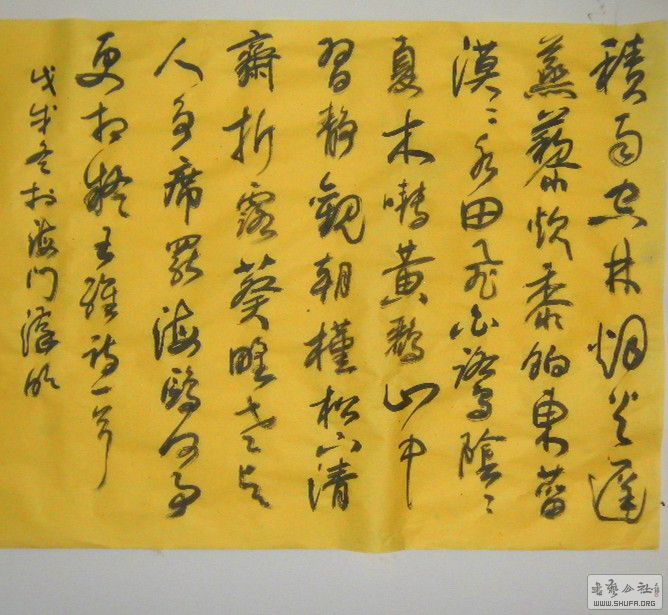 積雨空林烟火遲
蒸藜炊黍餉東菑
漠〻水田飛白鷺陰〻
夏木囀黃鸝山中
習靜觀朝槿松下清
齋折露葵野老與
人爭席罷海鷗何事
更相疑王維詩一首
戊戌冬扵海門
书艺公社
WWW.SHUFA.ORG